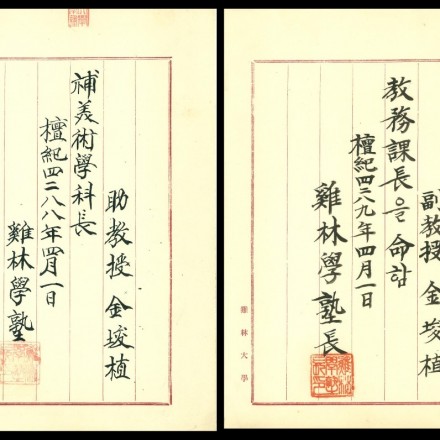 助教授 金埈植
補美術學科長
檀紀四二八八年四月一日
雞林學塾
副教授 金埈植
教務課長을 命함
檀紀四二八九年四月一日
雞林學塾長
雞林大學